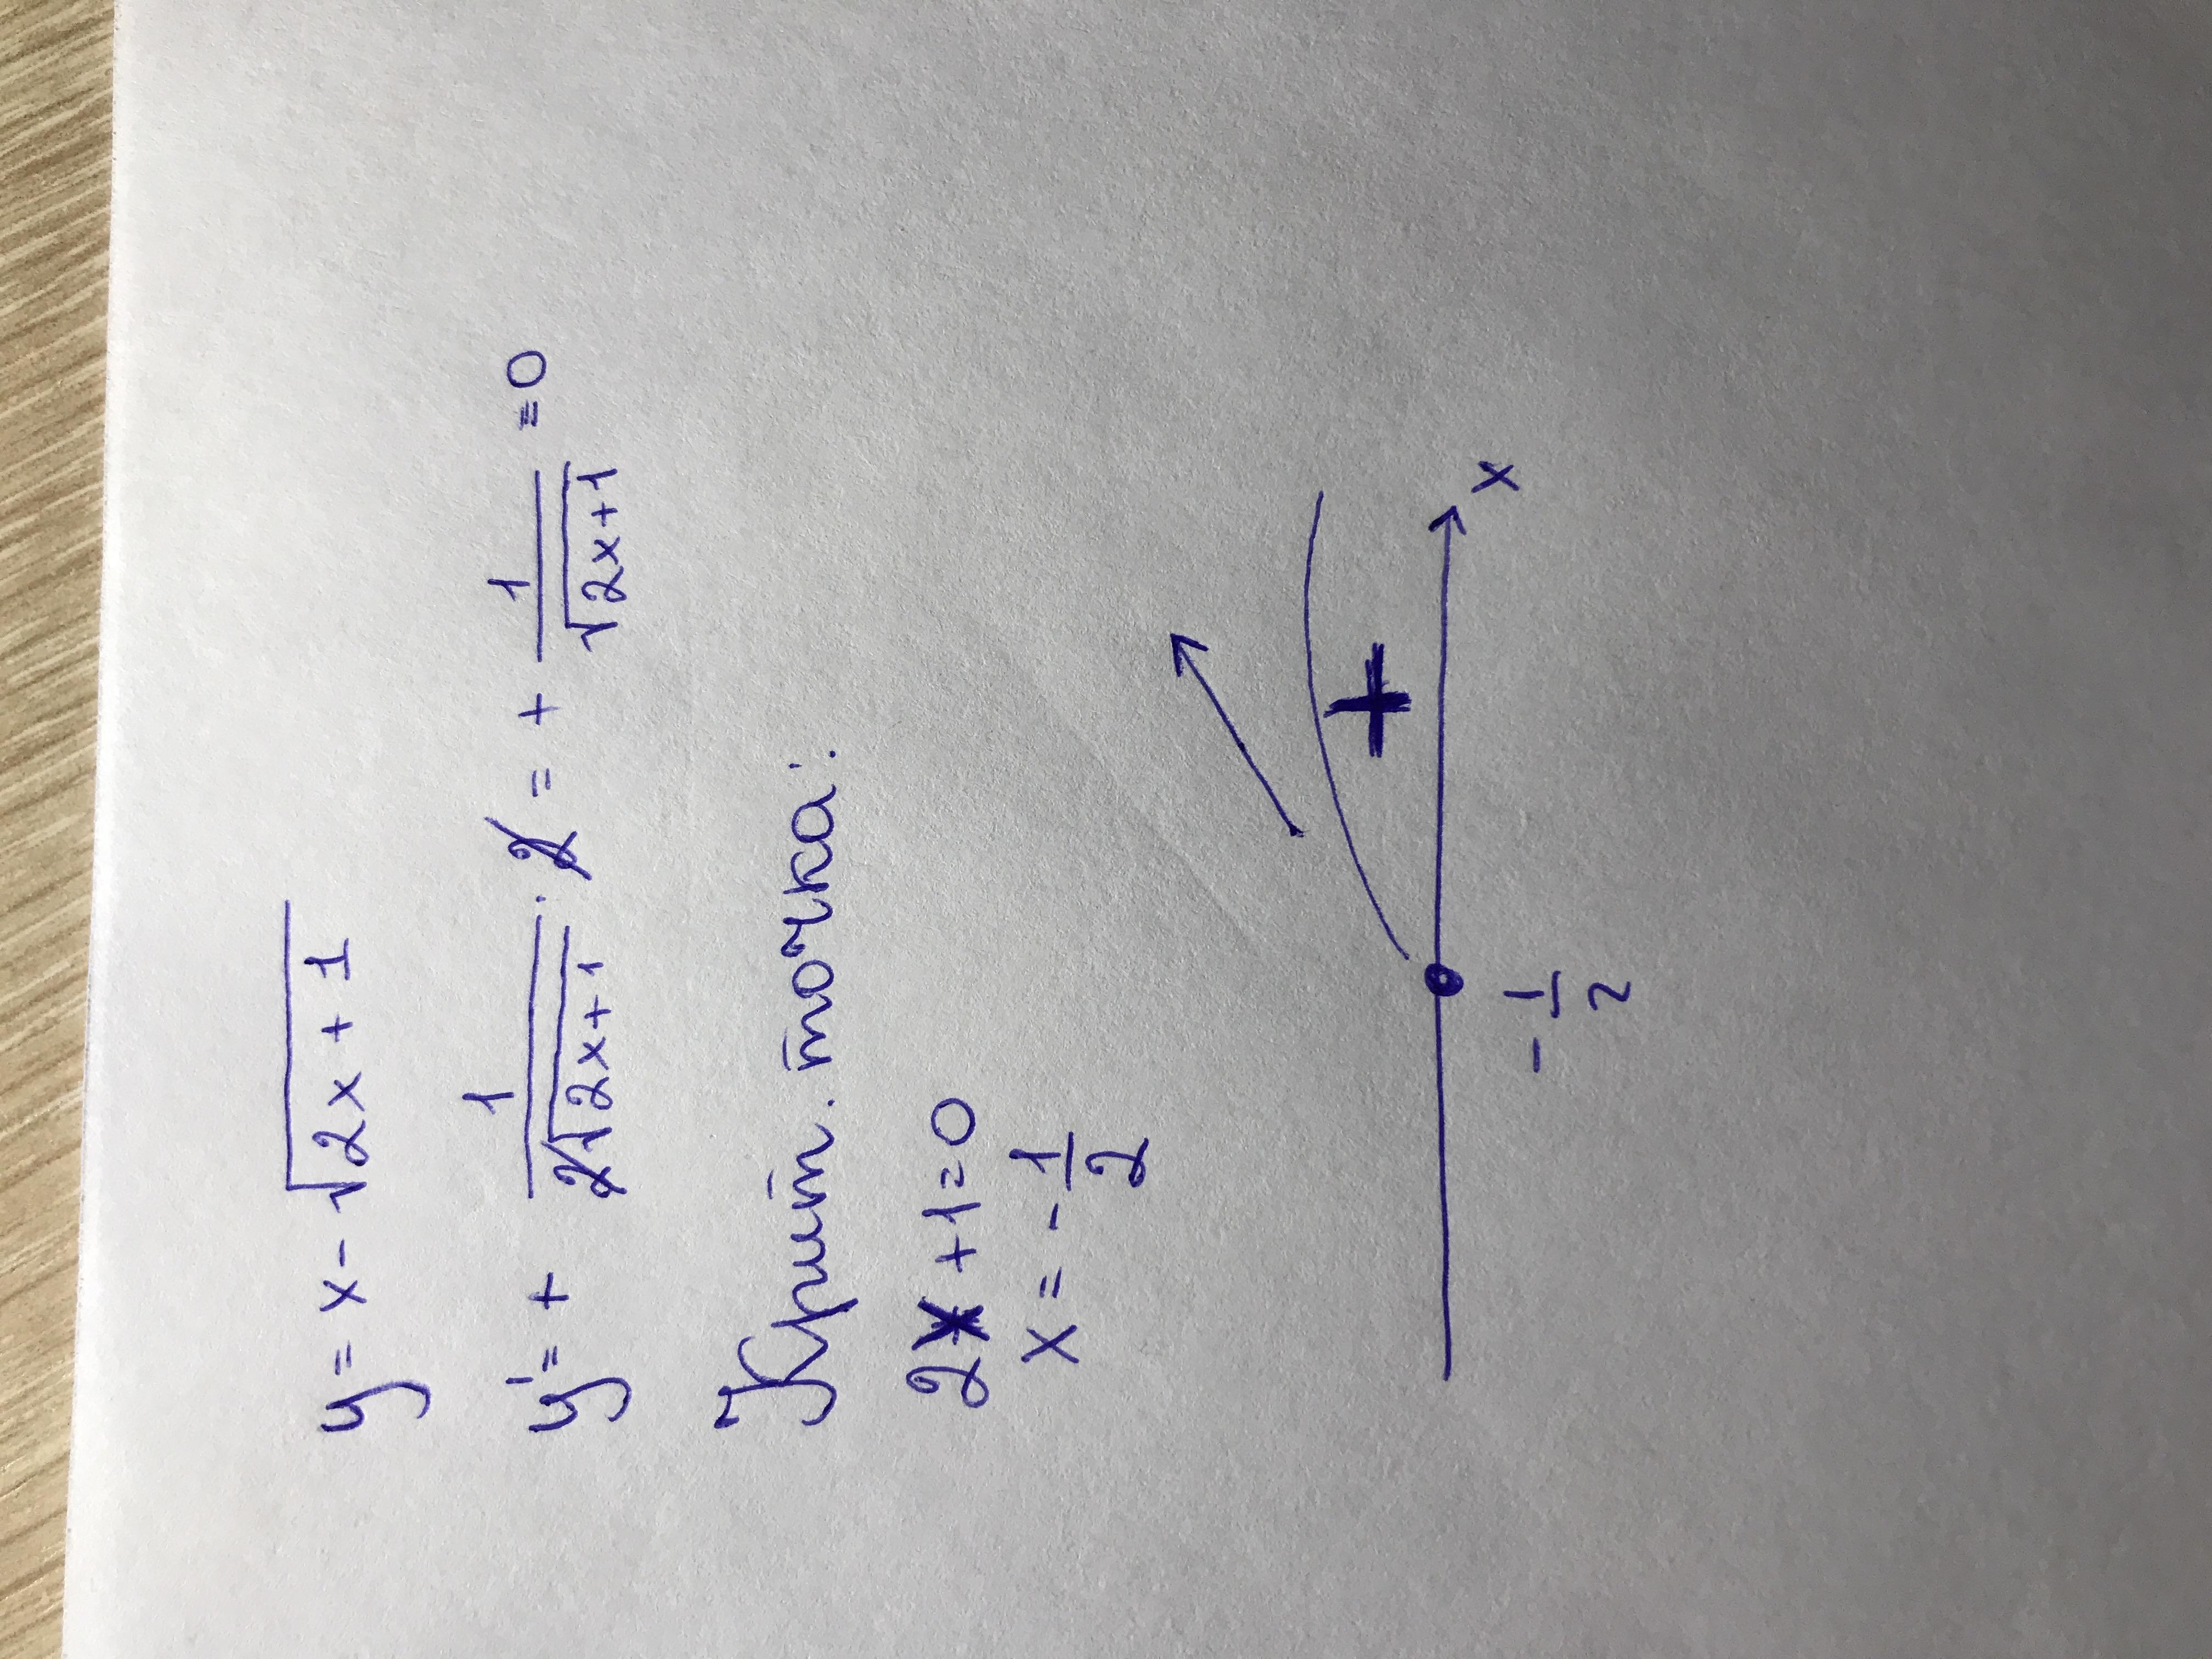 y = x - √(2x + 1)
y' = + 1/(2√(2x+1)) · 2 = + 1/√(2x+1) = 0
Крит. точка:
2x + 1 = 0
x = - 1/2
+
- 1/2
x